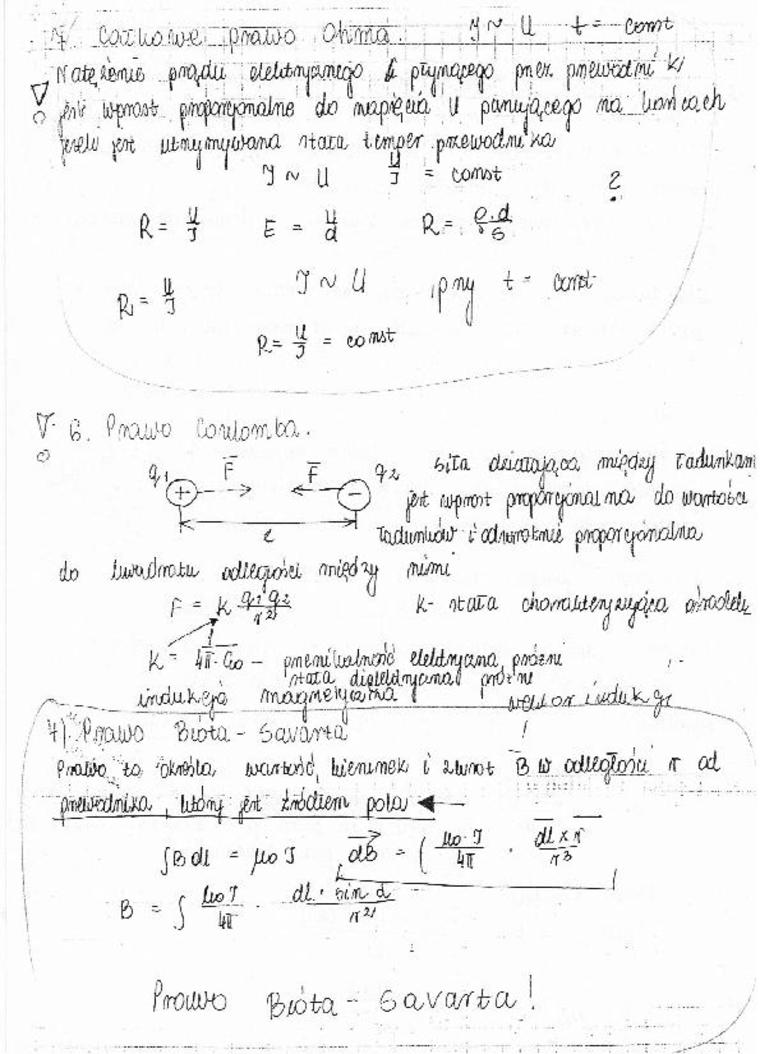 7. Całkowe prawo Ohma. I ~ U t = const
Natężenie prądu elektrycznego płynącego przez przewodnik
jest wprost proporcjonalne do napięcia U panującego na końcach
jeżeli jest utrzymywana stała temper. przewodnika
I ~ U U/I = const ?
R = U/I E = U/d R = ρ·d/S
R = U/I I ~ U przy t = const
R = U/I = const
6. Prawo Coulomba.
q1 + F F − q2 siła działająca między ładunkami
jest wprost proporcjonalna do wartości
ładunków i odwrotnie proporcjonalna
do kwadratu odległości między nimi
F = k q1 q2/r² k - stała charakteryzująca ośrodek
k = 1/4π·ε0 – przenikalność elektryczna próżni
stała dielektryczna próżni
indukcja magnetyczna wektor indukcji
7) Prawo Biota - Savarta !
Prawo to określa wartość, kierunek i zwrot B w odległości r od
przewodnika, który jest źródłem pola
∫B dl = μ0 I dB = ( μ0·I/4π · dl × r/r³
B = ∫ μ0 I/4π · dl · sin α/r²
Prawo Biota - Savarta!